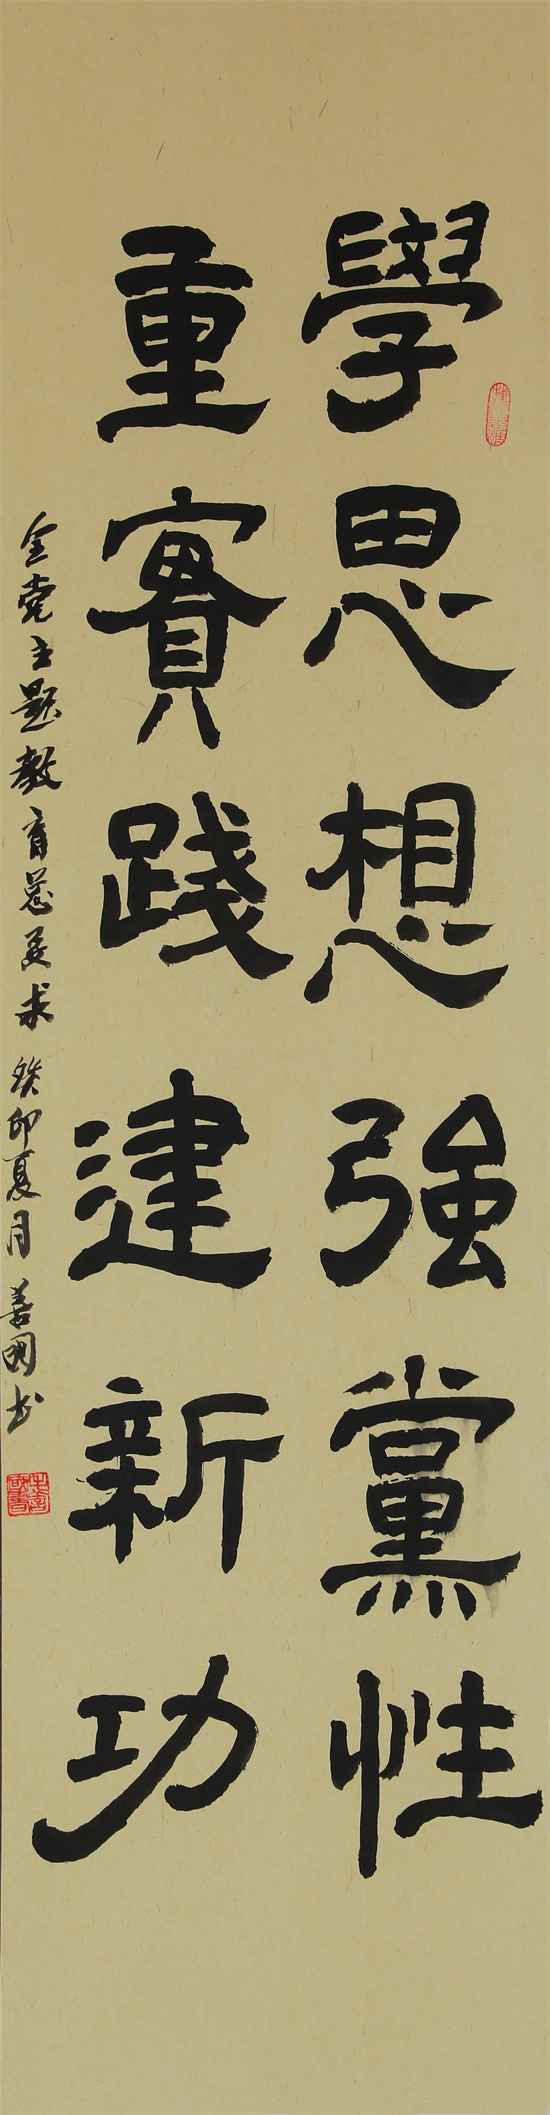 學思想強黨性
重實踐建新功
全党主题教育总要求 癸卯夏月 善国书